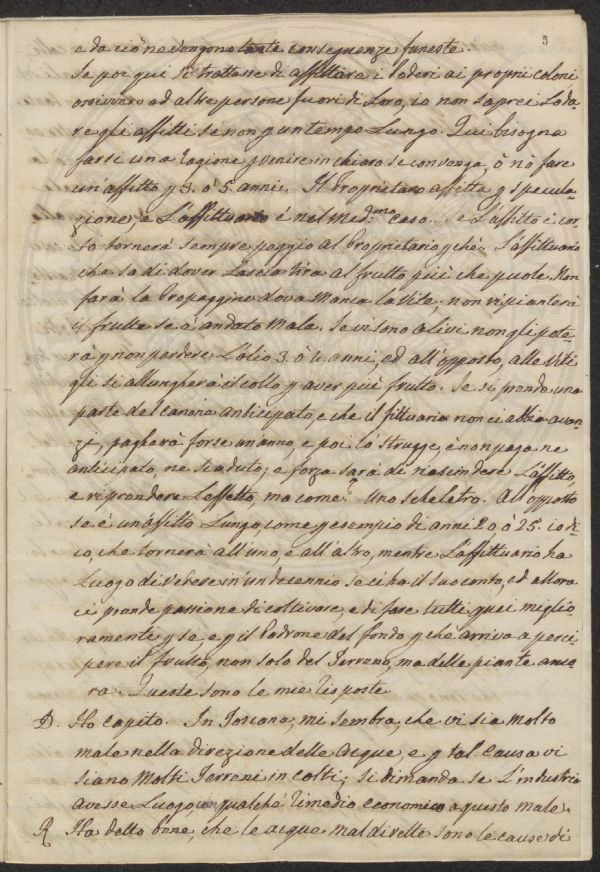 5
e da ciò ne vengono tante conseguenze funeste.
Se poi qui si trattasse di affittare i Poderi ai proprii coloni
ovvivero ad altre persone fuori di Loro, io non saprei Loda-
re gli affitti se non p un tempo Lungo. Qui bisogna
farsi una ragione, p venire in chiaro se convenga, ò nò fare
un'affitto p 3. ò 5. anni. Il Proprietario affitta p specula-
zione, e L'affittuario é nel med.mo caso. Se L'affitto é cor-
to tornerà sempre peggio al Proprietario pché L'affittuario
che sa di dover Lasciar tira al frutto più che puole. Non
farà la Propaggine dova Manca la Vite; non ripianterà
i frutti se é andato Male. Se vi sono Olivi non gli pote-
rà p non perdere L'olio 3. ò 4. anni, ed all'opposto, alle Viti
gli si allungherà il collo p aver più frutto. Se si prende una
parte del canone anticipato, e che il fittuario non ci abbia avan-
zi, pagherà forse un anno, e poi lo strugge, e non paga ne
anticipato, ne scaduto; e forza sarà di riescindere L'affitto,
e riprendere L'effetto, ma come? Uno scheletro. Al opposto
se é un'affitto Lungo come p esempio di anni 20 ò 25. io di-
co, che tornerà all'uno, e all'altro, mentre L'affittuario ha
Luogo di vedere in un decennio se ci ha il suo conto, ed allora
ci prende passione di coltivare, e di fare tutti quei miglio-
ramenti p se, e p il Padrone del fondo pché arriva a perci-
pere il frutto, non solo del Terreno, ma delle piante anco-
ra. Queste sono le mie risposte
D. Ho capito. In Toscana, mi sembra, che vi sia molto
male nella direzione delle acque, e p tal causa vi
siano Molti Terreni in colti; si dimanda se L'industria
avesse Luogo, con qualché rimedio economico a questo male.
R Ha detto bene, che le acque mal dirette sono le cause di